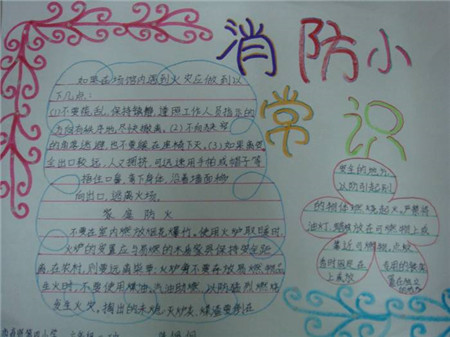 消防小
常识
如果在场馆内遇到火灾应做到以
下几点：
(1)不要慌乱，保持镇静，遵照工作人员指示的
方向有秩序地尽快撤离。(2)不向
的角落逃避，也不要躲在座椅下久。(3)如发
全出口较远，人又拥挤，可迅速用手帕或帽子等
捂住口鼻，蹲下身体，沿着墙面
向出口，逃离火场。
家庭防火
不要在室内燃放烟花爆竹。使用火炉取暖时
火炉的安置应与易燃的木质家具保持安全距
离。在农村，则要远离柴草。火炉旁不要存放易燃物品
生火时，不要使用煤油、汽油助燃，以防猛烈燃烧
发生火灾。掏出的未熄灭炉灰、煤渣要倒在
安全的地方，
以防引起别
的物体燃烧起火。严禁将
台灯、蜡烛放在可燃物上或
靠近可燃物。点蚊
香时固定在